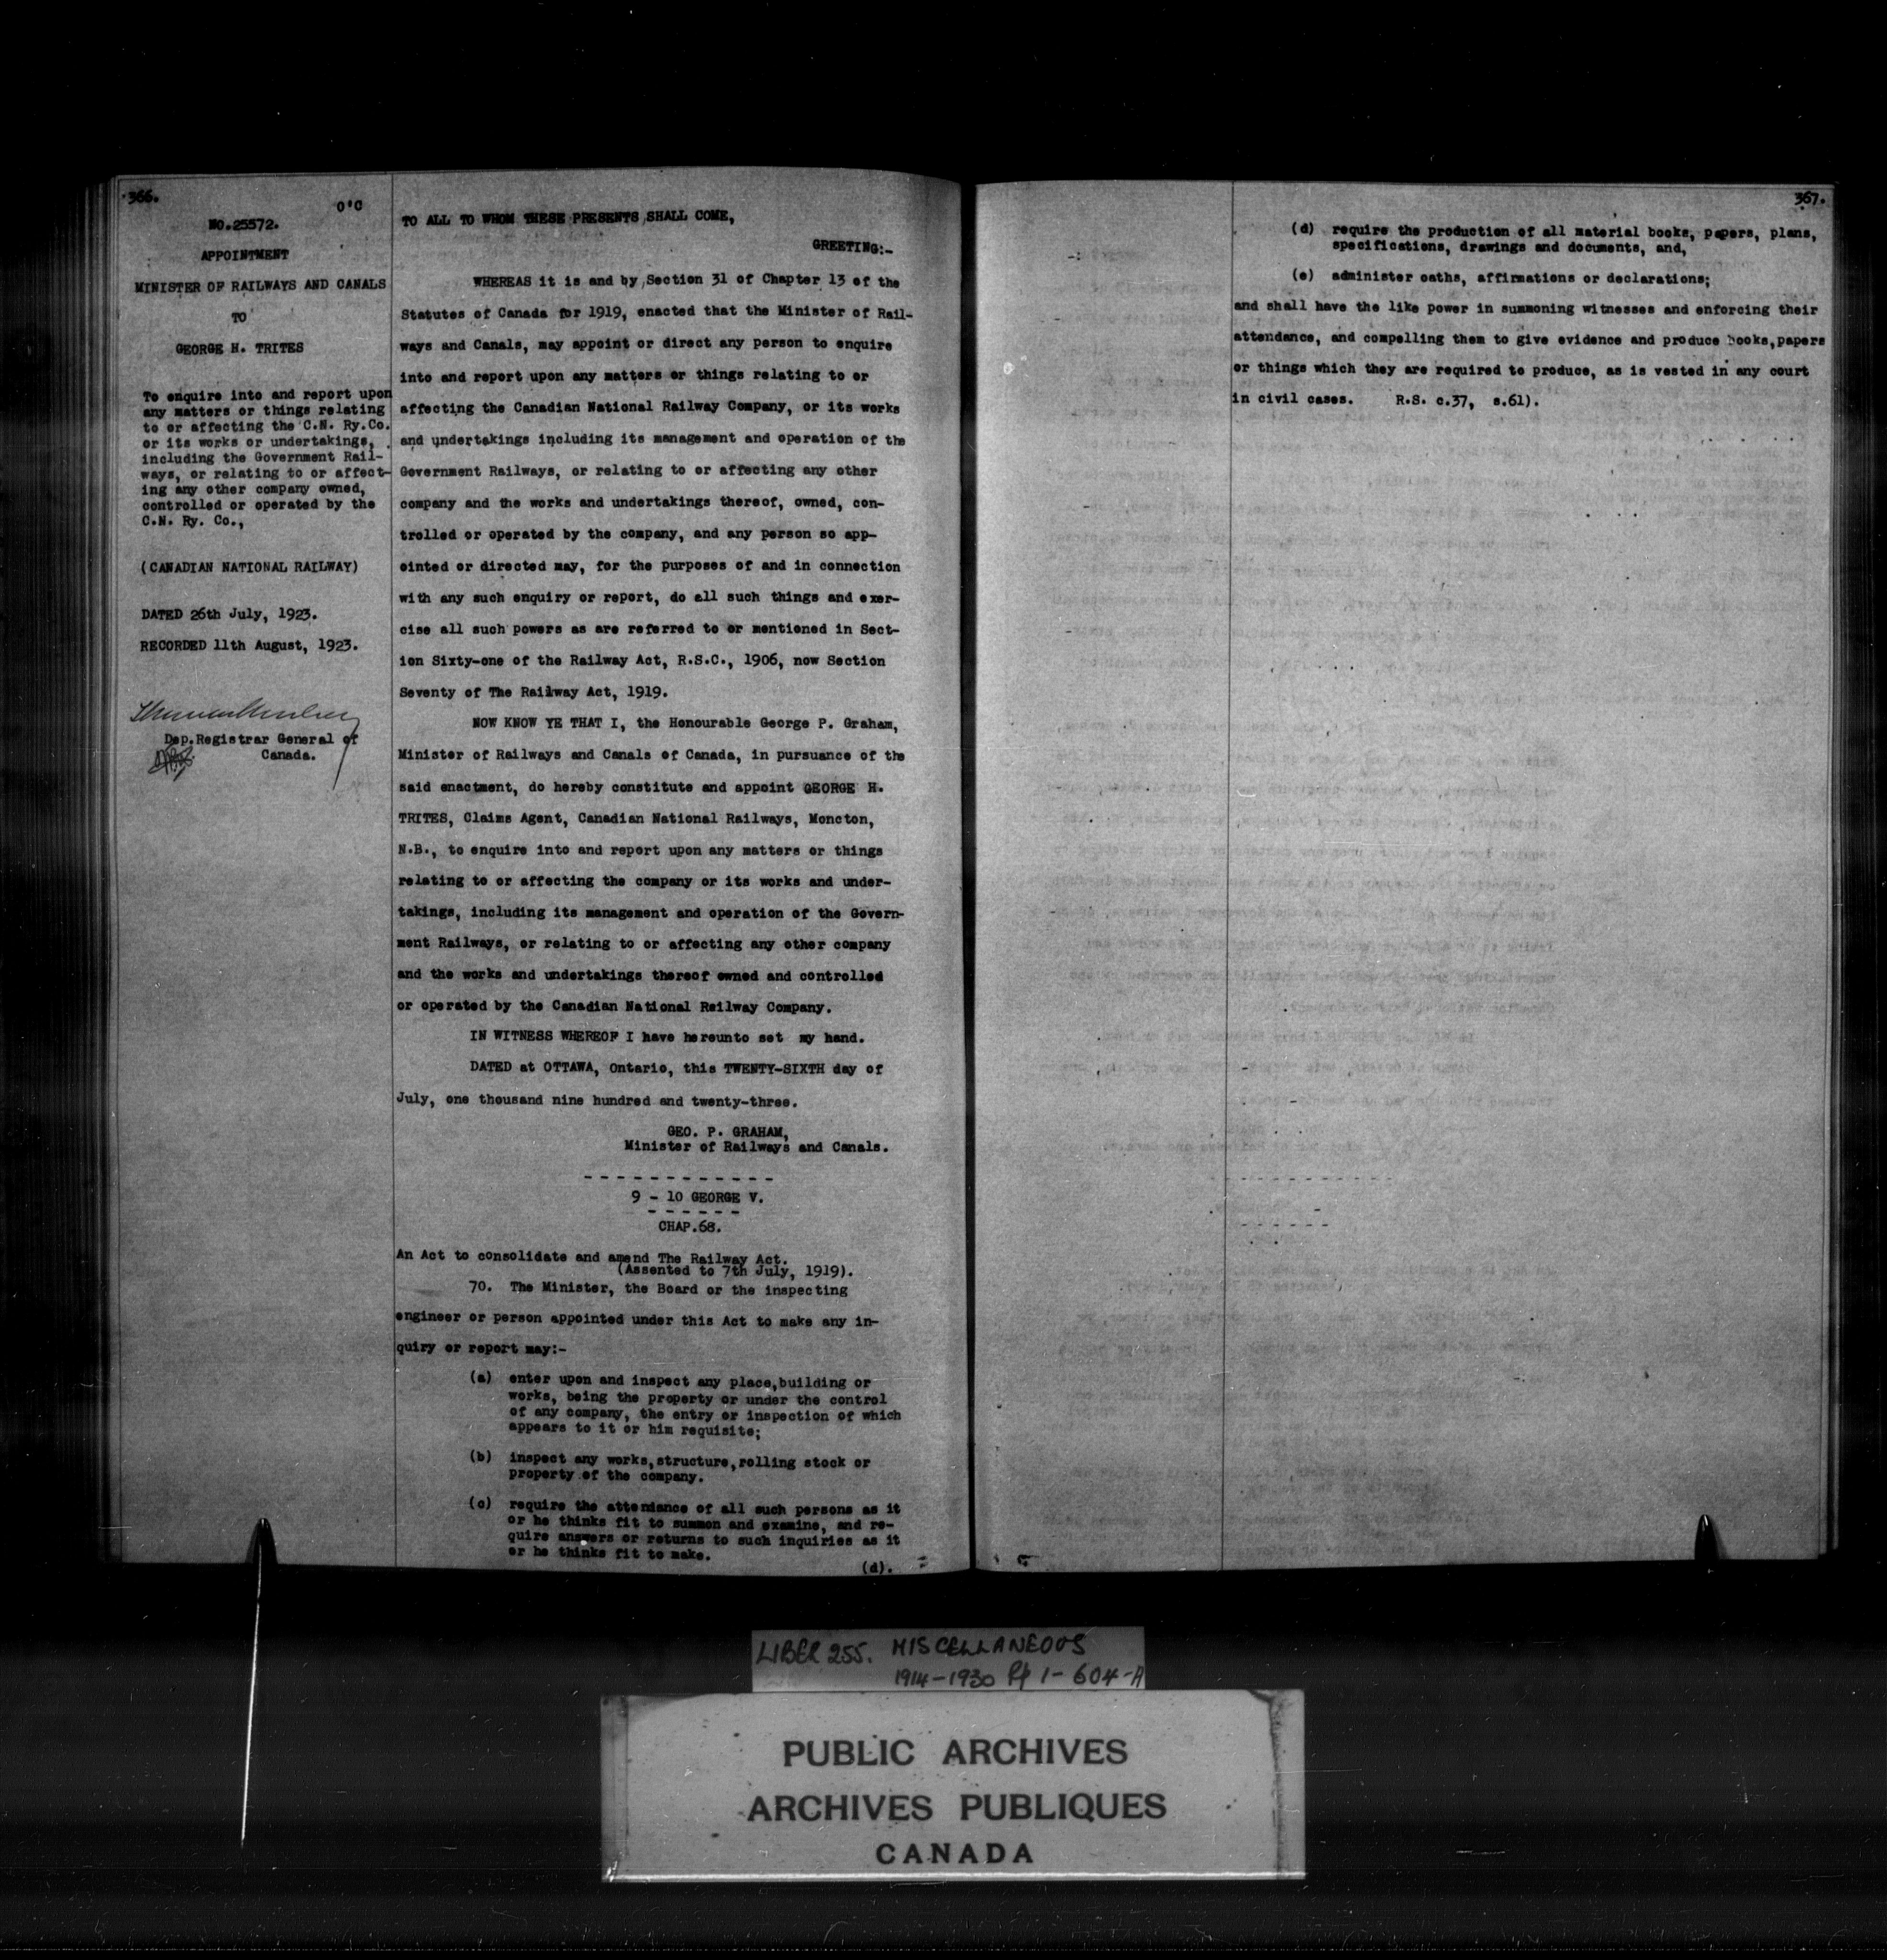 366.
O'C
NO.25572.
APPOINTMENT
MINISTER OF RAILWAYS AND CANALS
TO
GEORGE H. TRITES
To enquire into and report upon
any matters or things relating
to or affecting the C.N. Ry.Co.
or its works or undertakings,
including the Government Rail-
ways, or relating to or affect-
ing any other company owned,
controlled or operated by the
C.N. Ry. Co.,
(CANADIAN NATIONAL RAILWAY)
DATED 26th July, 1923.
RECORDED 11th August, 1923.
Dep.Registrar General of
Canada.
TO ALL TO WHOM THESE PRESENTS SHALL COME,
GREETING:-
WHEREAS it is and by Section 31 of Chapter 13 of the
Statutes of Canada for 1919, enacted that the Minister of Rail-
ways and Canals, may appoint or direct any person to enquire
into and report upon any matters or things relating to or
affecting the Canadian National Railway Company, or its works
and undertakings including its management and operation of the
Government Railways, or relating to or affecting any other
company and the works and undertakings thereof, owned, con-
trolled or operated by the company, and any person so app-
ointed or directed may, for the purposes of and in connection
with any such enquiry or report, do all such things and exer-
cise all such powers as are referred to or mentioned in Sect-
ion Sixty-one of the Railway Act, R.S.C., 1906, now Section
Seventy of The Railway Act, 1919.
NOW KNOW YE THAT I, the Honourable George P. Graham,
Minister of Railways and Canals of Canada, in pursuance of the
said enactment, do hereby constitute and appoint GEORGE H.
TRITES, Claims Agent, Canadian National Railways, Moncton,
N.B., to enquire into and report upon any matters or things
relating to or affecting the company or its works and under-
takings, including its management and operation of the Govern-
ment Railways, or relating to or affecting any other company
and the works and undertakings thereof owned and controlled
or operated by the Canadian National Railway Company.
IN WITNESS WHEREOF I have hereunto set my hand.
DATED at OTTAWA, Ontario, this TWENTY-SIXTH day of
July, one thousand nine hundred and twenty-three.
GEO. P. GRAHAM,
Minister of Railways and Canals.
- - - - - - - - - - - -
9 - 10 GEORGE V.
- - - - - -
CHAP.68.
An Act to consolidate and amend The Railway Act.
(Assented to 7th July, 1919).
70. The Minister, the Board or the inspecting
engineer or person appointed under this Act to make any in-
quiry or report may:-
(a) enter upon and inspect any place,building or
works, being the property or under the control
of any company, the entry or inspection of which
appears to it or him requisite;
(b) inspect any works,structure,rolling stock or
property of the company.
(c) require the attendance of all such persons as it
or he thinks fit to summon and examine, and re-
quire answers or returns to such inquiries as it
or he thinks fit to make.
(d).
367.
(d) require the production of all material books, papers, plans,
specifications, drawings and documents, and,
(e) administer oaths, affirmations or declarations;
and shall have the like power in summoning witnesses and enforcing their
attendance, and compelling them to give evidence and produce books,papers
or things which they are required to produce, as is vested in any court
in civil cases. R.S. c.37, s.61).
LIBER 255. MISCELLANEOUS
1914-1930 Pp 1-604-A
PUBLIC ARCHIVES
ARCHIVES PUBLIQUES
CANADA